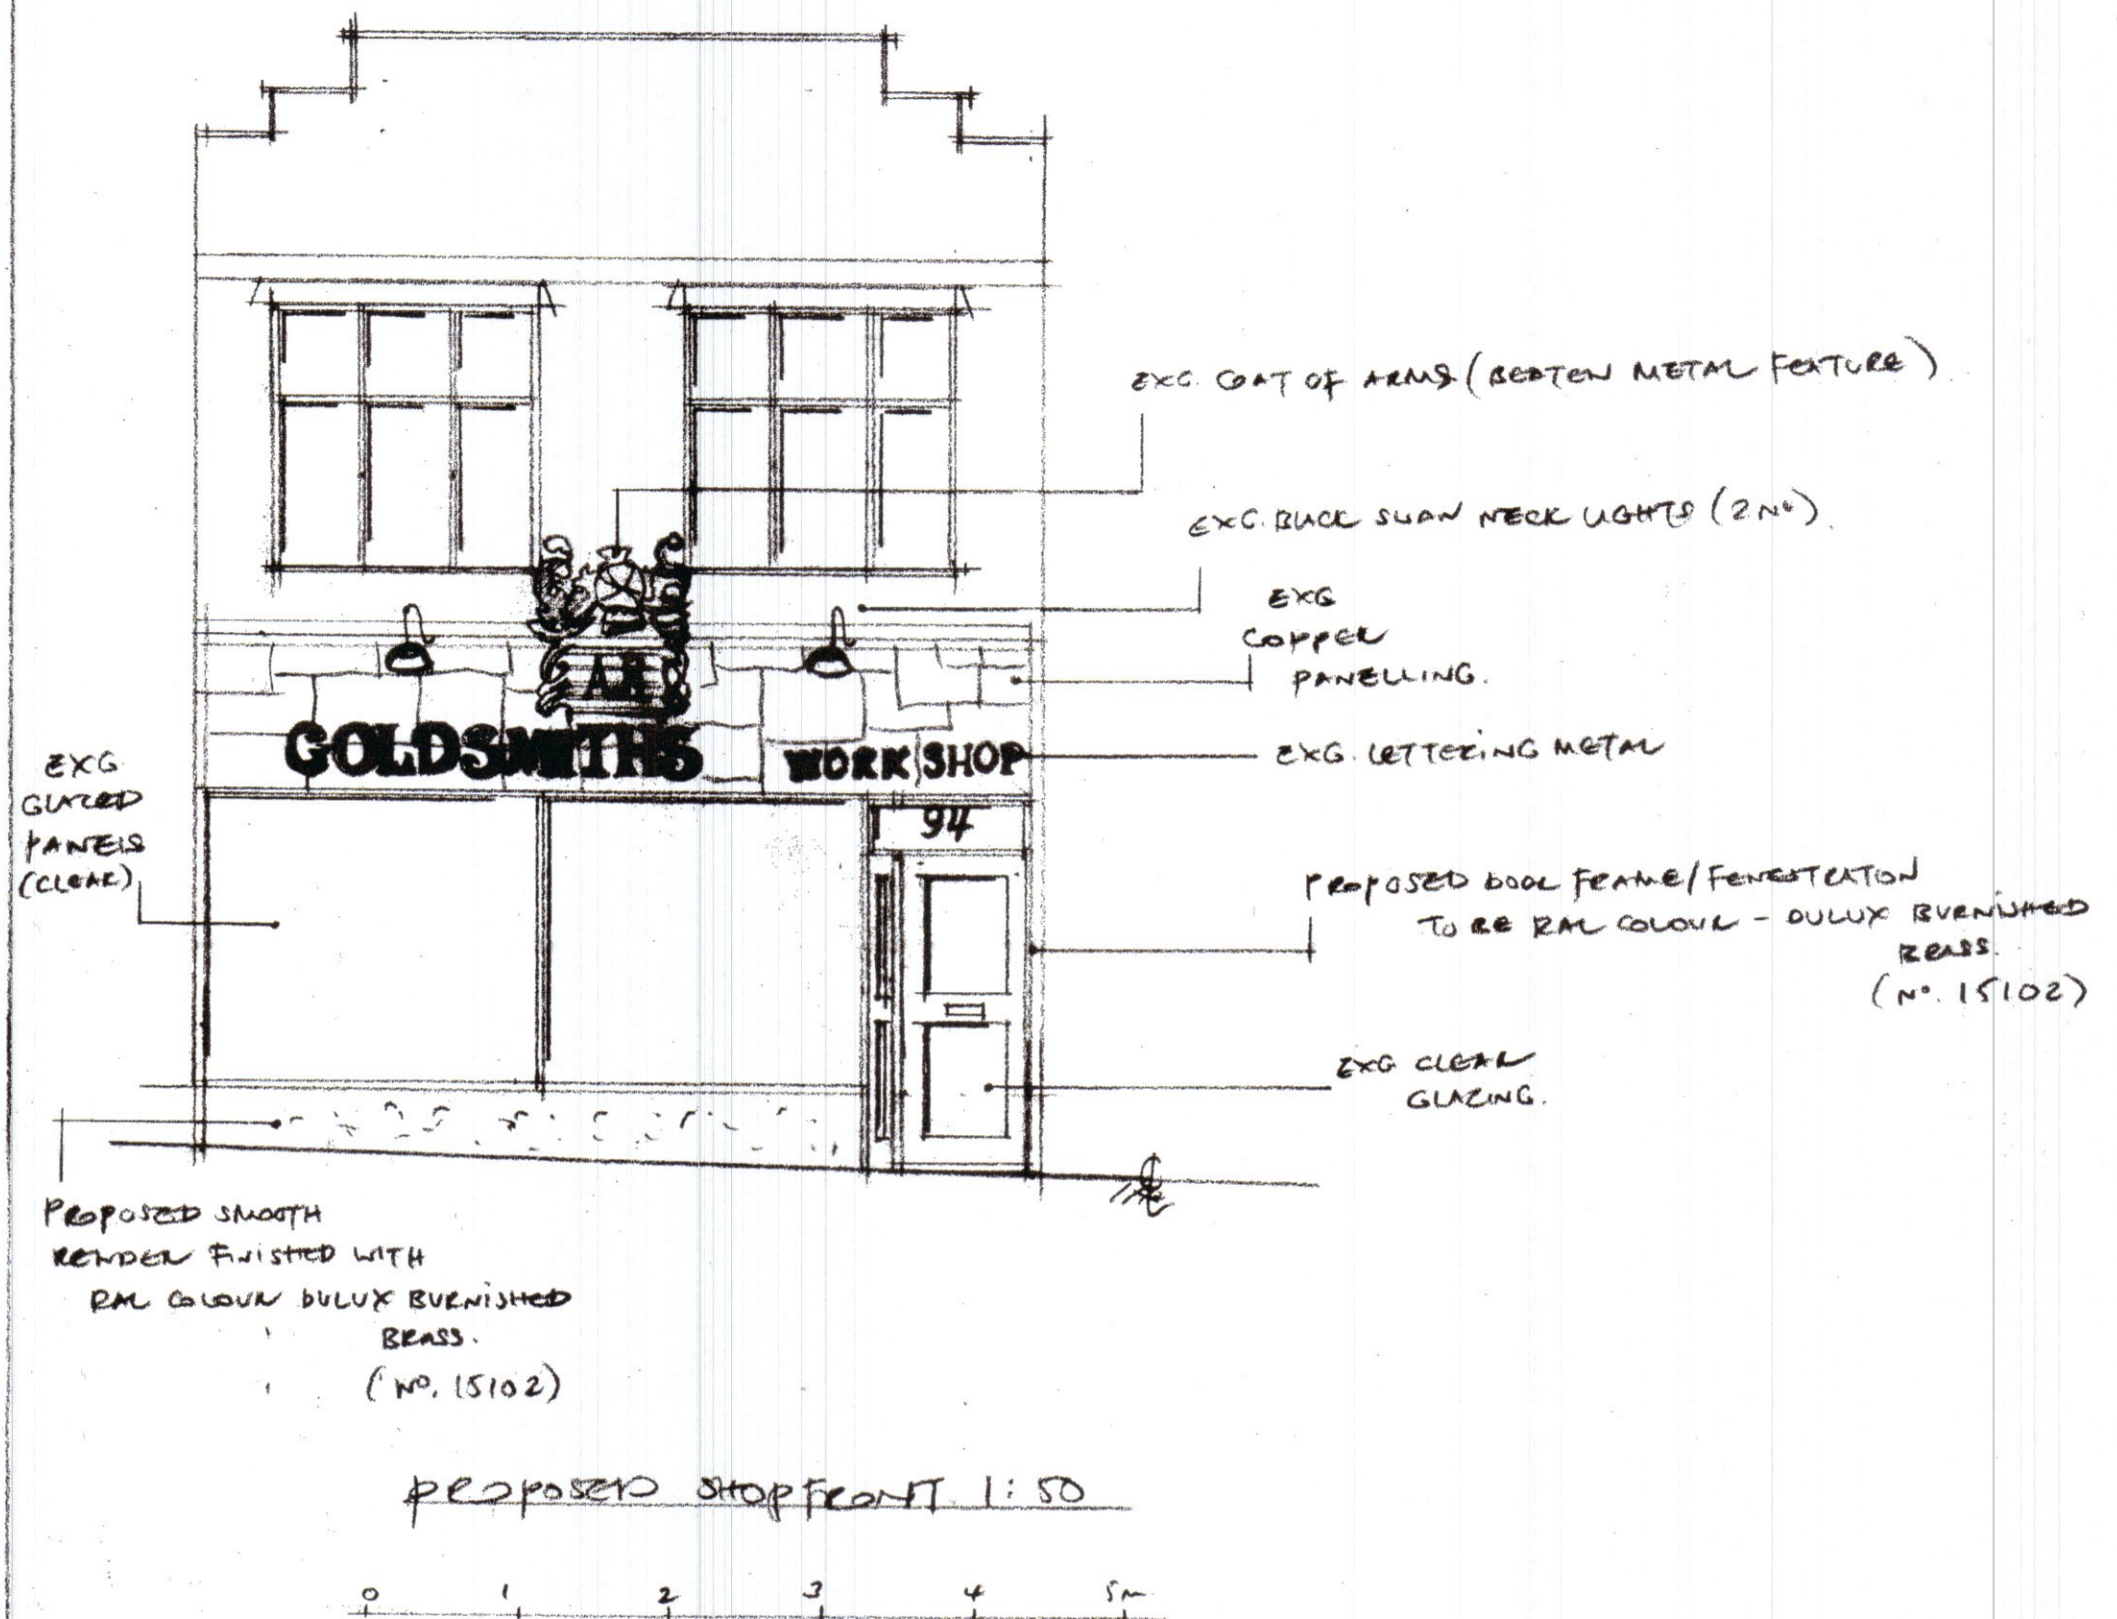 EXG. COAT OF ARMS (BEATEN METAL FEATURE)
EXG. BLACK SWAN NECK LIGHTS (2 No).
EXG
COPPER
PANELLING.
GOLDSMITHS WORKSHOP
EXG. LETTERING METAL
EXG
GLAZED
PANELS
(CLEAR)
94
PROPOSED DOOR FRAME/FENESTRATION
TO BE RAL COLOUR - DULUX BURNISHED
BRASS.
(No. 15102)
EXG CLEAR
GLAZING.
PROPOSED SMOOTH
RENDER FINISHED WITH
RAL COLOUR DULUX BURNISHED
BRASS.
(No. 15102)
PROPOSED SHOPFRONT 1:50
0 1 2 3 4 5m